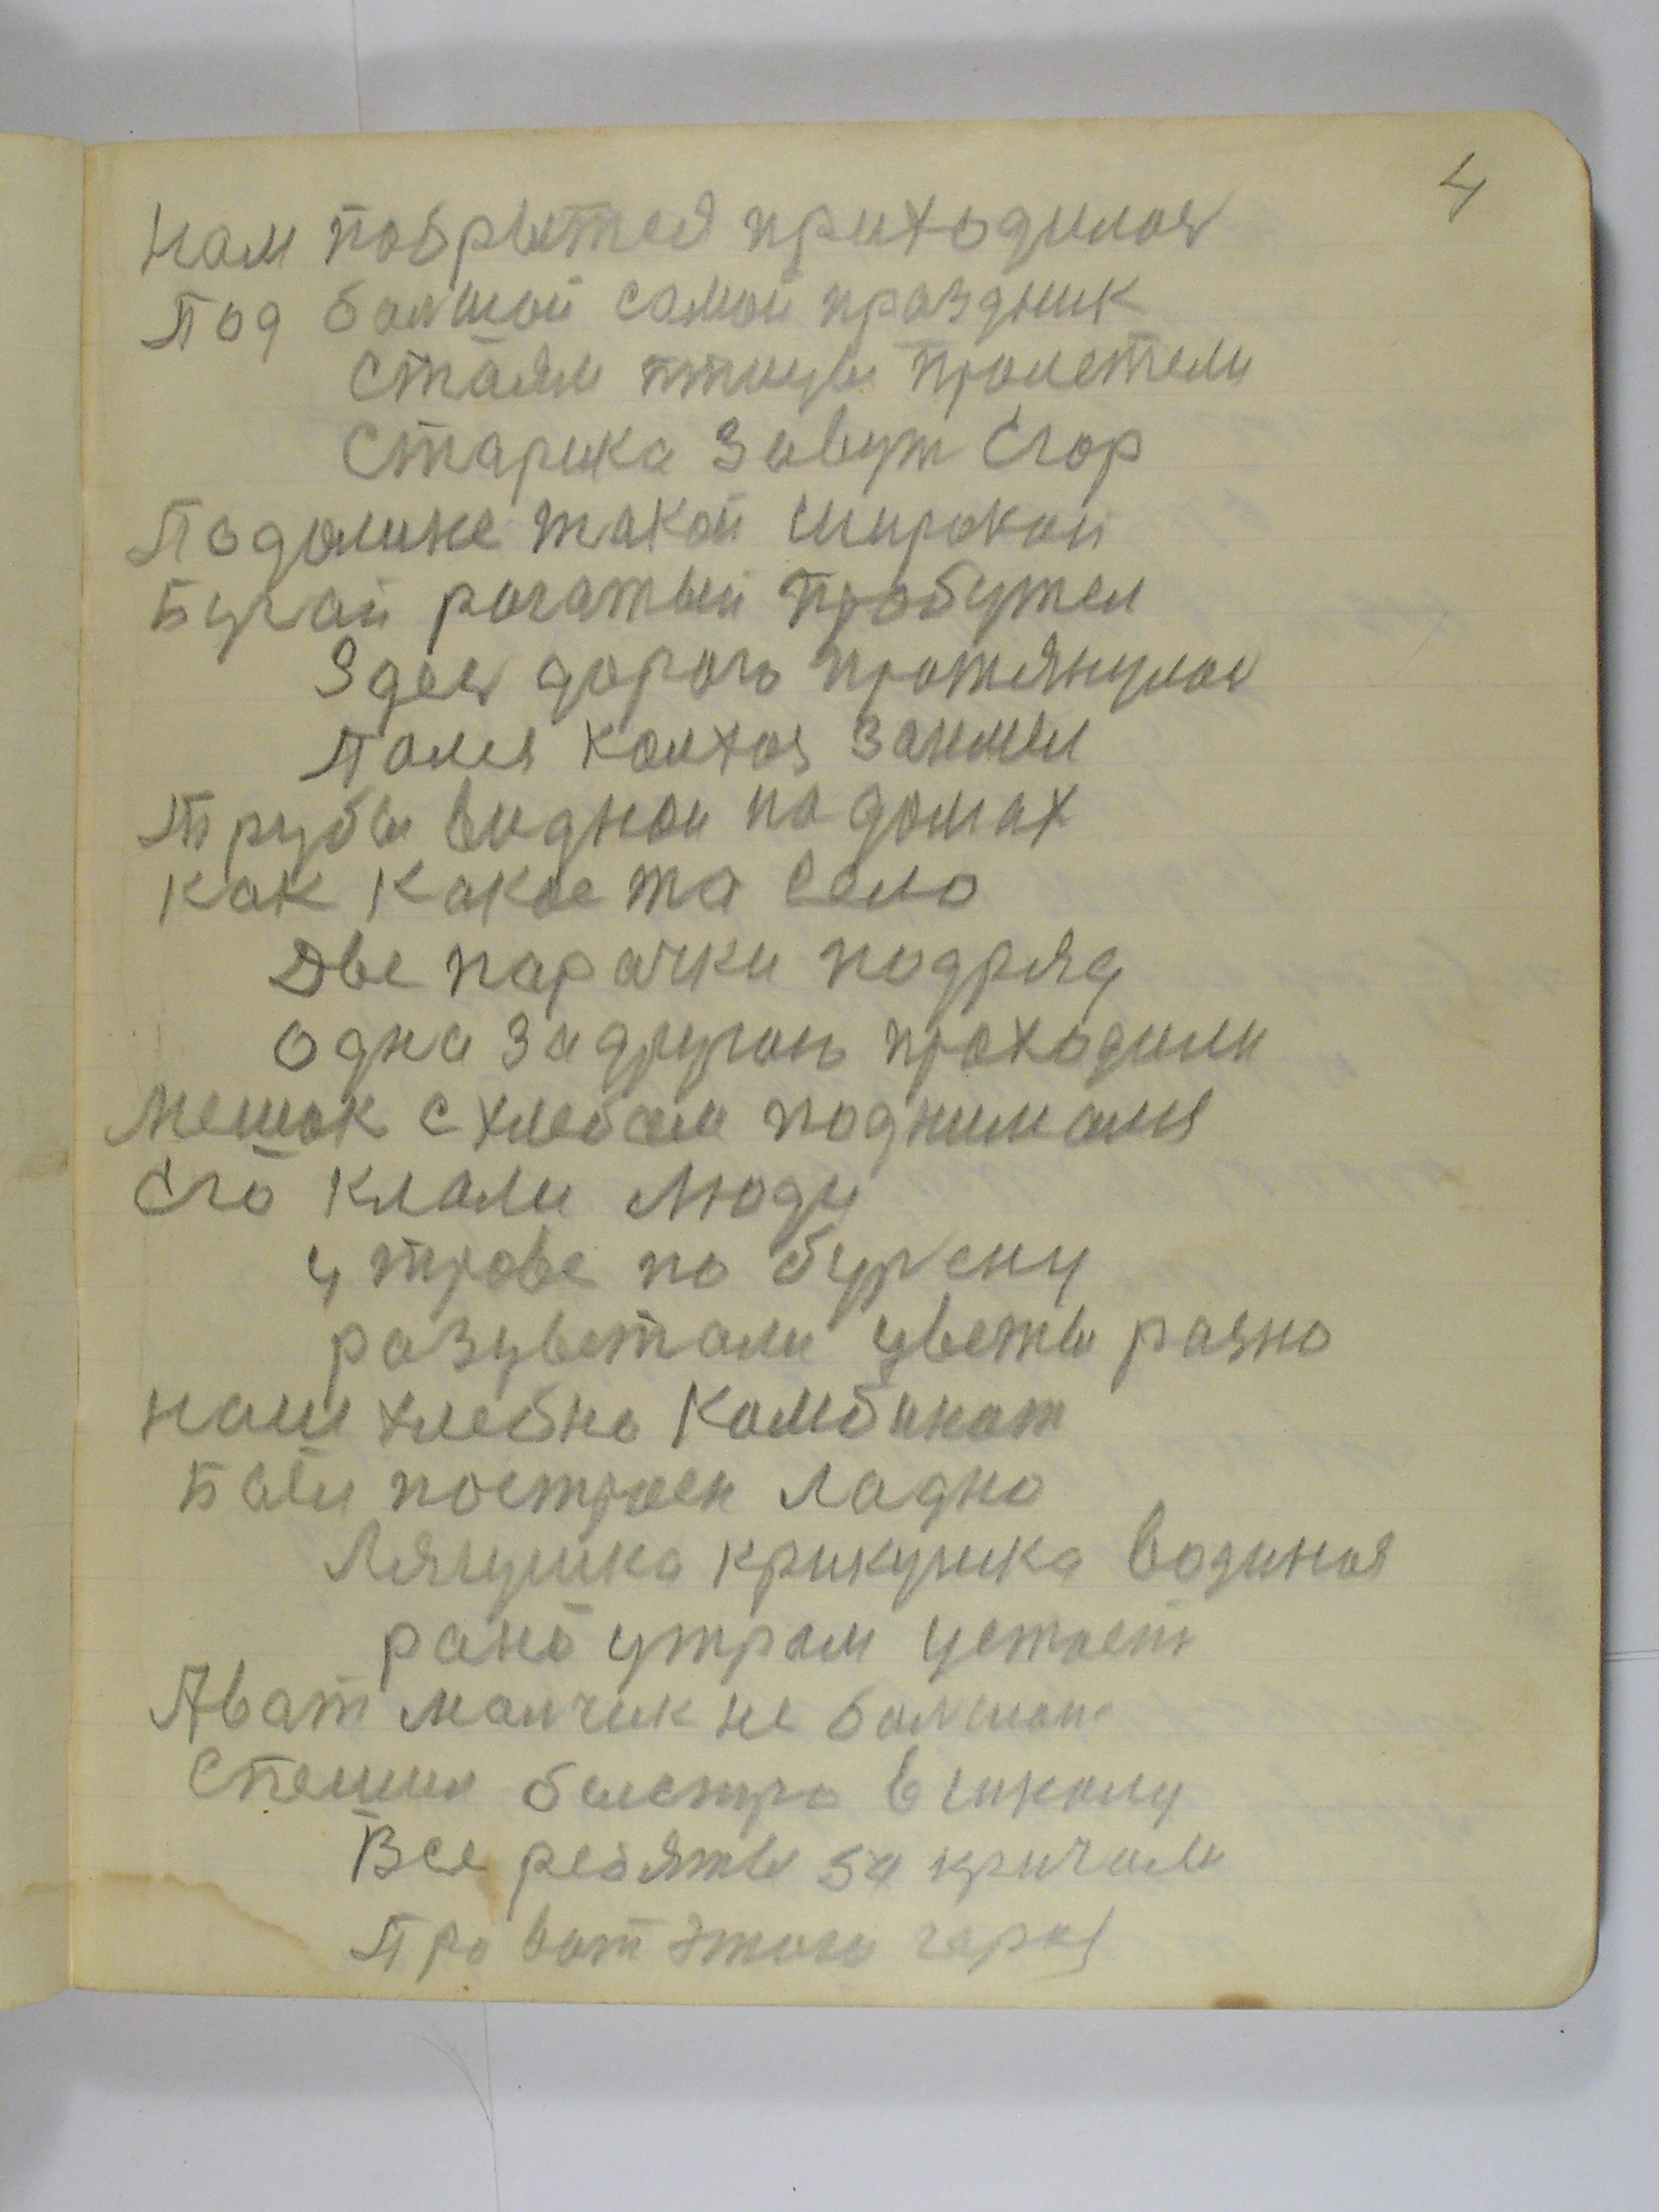 4
Нам побрытся приходилось
Под болшой самой праздник
Стаям птицы пролетели
Старика завут Егор
Подолине такой широкой
Бугай рогатый пробужел
Здесь дорогь протянулось
Полея колхоз занмел
Трубы видной на домах
Как какое та село
Две парачки подряд
Одна задругоь проходили
Мешок с хлебам поднималя
Его клали люди
у траве по бурену
разцветали цветы разно
Наш хлебнь Комбинат
Был построен Ладно
Лягушка крикушка водиноя
рано утрам устоеть
Ават малчик не болшои
Спешил быстро в школу
Все ребяты за кричали
Про вот этого героя